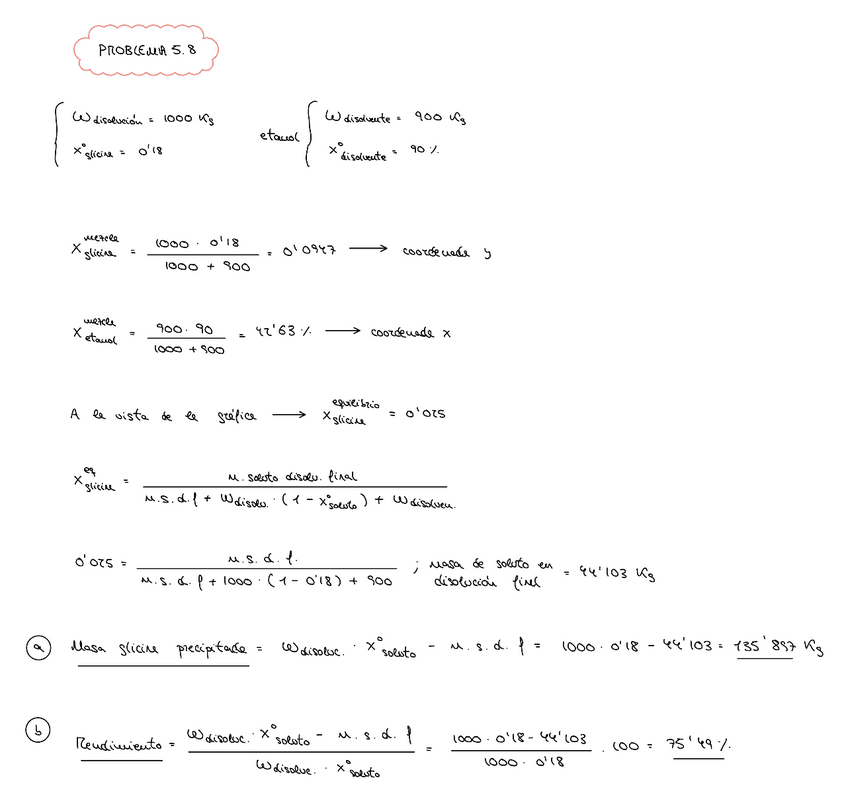 PROBLEMA 5.8
Wdisolución = 1000 Kg
x°glicina = 0'18
etanol
Wdisolvente = 900 Kg
x°disolvente = 90 %
x mezcla glicina = 1000 · 0'18 / 1000 + 900 = 0'0947 → coordenada y
x mezcla etanol = 900 · 90 / 1000 + 900 = 42'63 % → coordenada x
A la vista de la gráfica → x equilibrio glicina = 0'025
x eq glicina = m. soluto disolu. final / m.s.d.f + Wdisolu. · (1 - x°soluto) + Wdisolven.
0'025 = m.s.d.f. / m.s.d.f + 1000 · (1 - 0'18) + 900 ; masa de soluto en disolución final = 44'103 Kg
a Masa glicina precipitada = Wdisoluc. · x°soluto - m.s.d.f = 1000 · 0'18 - 44'103 = 135'897 Kg
b Rendimiento = Wdisoluc. · x°soluto - m.s.d.f / Wdisoluc. · x°soluto = 1000 · 0'18 - 44'103 / 1000 · 0'18 · 100 = 75'49 %